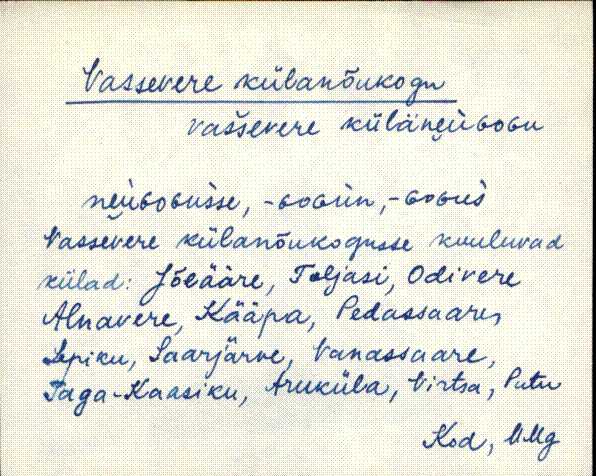 Vassevere külanõukogu
vašševere külänẹ̈üGoGu
nẹ̈üGoGušse, -GoGun, -GoGuš
Vassevere külanõukogusse kuuluvad
külad: Jõeääre, Toljasi, Odivere
Alnavere, Kääpa, Pedassaare,
Lepiku, Saarjärve, Vanassaare,
Taga-Kaasiku, Aruküla, Virtsa, Putu
Kod, MMg